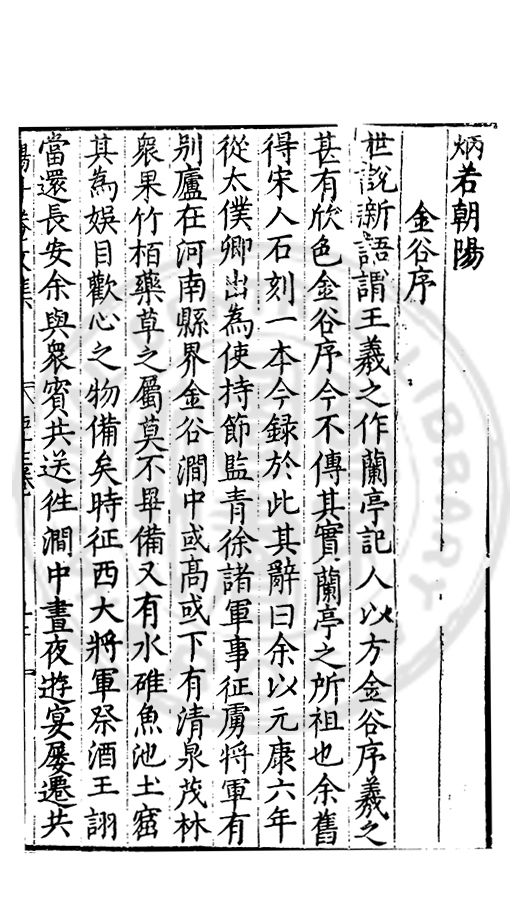 炳若朝陽
金谷序
世說新語謂王羲之作蘭亭記人以方金谷序羲之
甚有欣色金谷序今不傳其實蘭亭之所祖也余舊
得宋人石刻一本今録於此其辭曰余以元康六年
從太僕卿出為使持節監青徐諸軍事征虜將軍有
别廬在河南縣界金谷澗中或高或下有清泉茂林
衆果竹栢藥草之屬莫不畢備又有水碓魚池土窟
其為娛目歡心之物備矣時征西大將軍祭酒王詡
當還長安余與衆賓共送往澗中晝夜遊宴屢遷共
LIBRARY